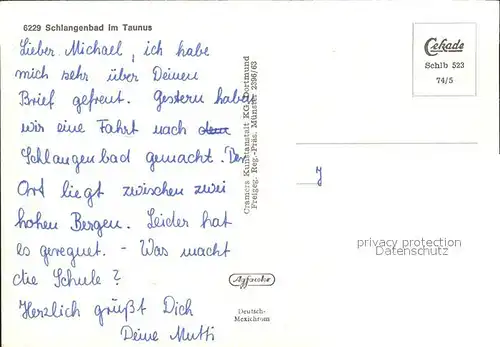 6229 Schlangenbad im Taunus
Lieber Michael, ich habe
mich sehr über Deinen
Brief gefreut. Gestern haben
wir eine Fahrt nach dem
Schlangenbad gemacht. Der
Ort liegt zwischen zwei
hohen Bergen. Leider hat
es geregnet. - Was macht
die Schule?
Herzlich grüßt Dich
Deine Mutti
Cramers Kunstanstalt KG, Dortmund
Freigeg. Reg.-Präs. Münster 2396/63
Agfacolor
Deutsch-
Mexichrom
Cekade
Schlb 523
74/5
privacy protection
Datenschutz